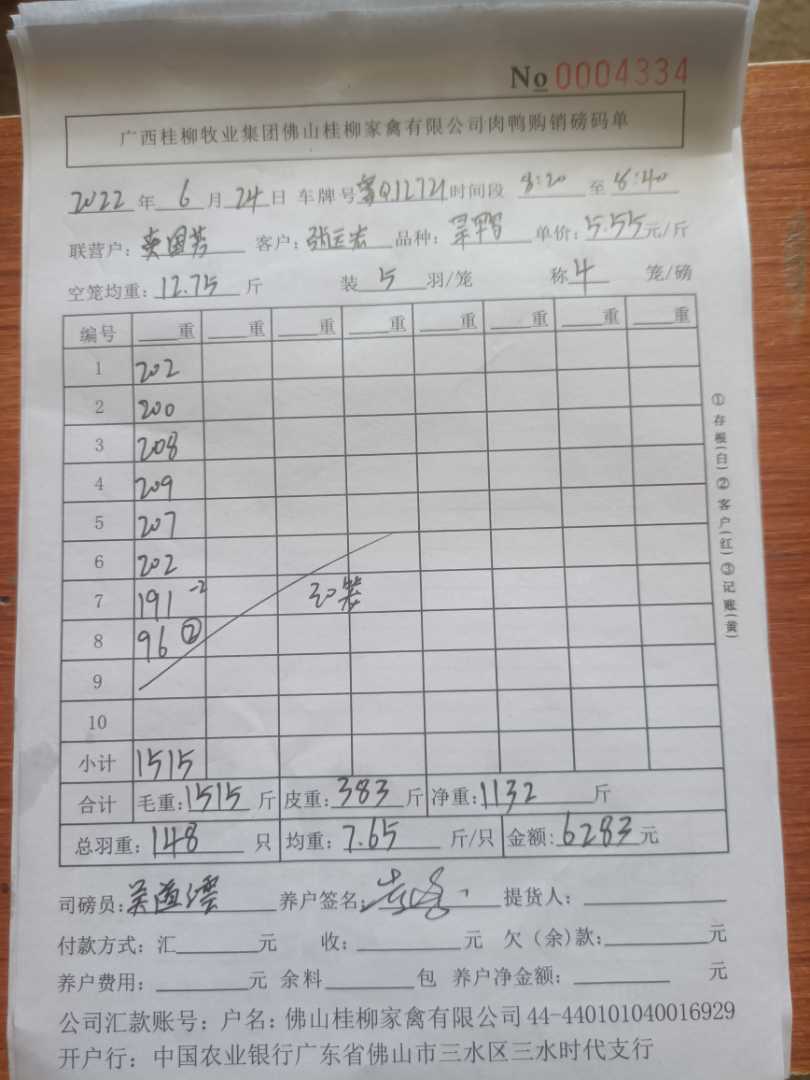 No 0004334
广西桂柳牧业集团佛山桂柳家禽有限公司肉鸭购销磅码单
2022年6月24日 车牌号Q12721时间段 8:20 至 8:40
联营户： 客户： 品种： 单价：5.55元/斤
空笼均重：12.75斤 装5羽/笼 称4笼/磅
编号 重 重 重 重 重 重 重 重
1 202
2 200
3 208
4 209
5 207
6 202
7 191 -2 30笼
8 96 ②
9
10
小计 1515
合计 毛重：1515斤 皮重：383斤 净重：1132斤
总羽重：148只 均重：7.65斤/只 金额：6283元
司磅员： 养户签名： 提货人：
付款方式：汇元 收：元 欠（余）款：元
养户费用：元 余料包 养户净金额：元
公司汇款账号：户名：佛山桂柳家禽有限公司 44-440101040016929
开户行：中国农业银行广东省佛山市三水区三水时代支行
①存根（白）②客户（红）③记账（黄）